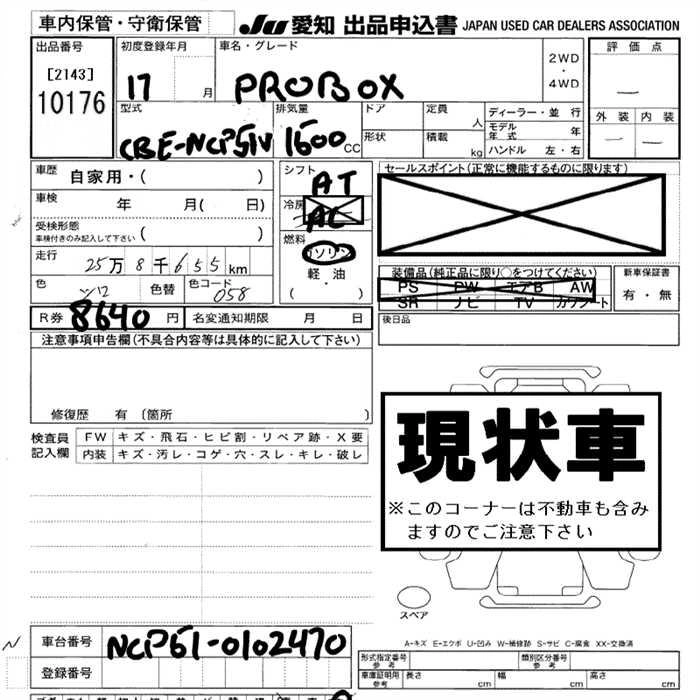 車内保管・守衛保管 JU 愛知 出品申込書 JAPAN USED CAR DEALERS ASSOCIATION
出品番号 初度登録年月 車名・グレード 2WD・4WD 評価点
[2143]
10176 17 月 PROBOX
型式 排気量 ドア 定員 人 ディーラー・並行 外装 内装
モデル年式 年
CBE-NCP51V 1500 CC 形状 積載 kg ハンドル 左・右
車歴 自家用・( ) シフト AT セールスポイント(正常に機能するものに限ります)
車検 年 月( 日) 冷房 AC
受検形態
車検付きのみ記入して下さい ( ) 燃料 ガソリン
走行 25万8千655km 軽・油 装備品(純正品に限り○をつけてください) 新車保証書
PS PW エアB AW 有・無
色 色替 色コード 058 ( ・ ) SR ナビ TV カワシート
R券 8640 円 名変通知期限 月 日 後日品
注意事項申告欄(不具合内容等は具体的に記入して下さい)
修復歴 有 〔箇所 〕
現状車
※このコーナーは不動車も含み
ますのでご注意下さい
検査員記入欄 FW キズ・飛石・ヒビ割・リペア跡・X要
内装 キズ・汚レ・コゲ・穴・スレ・キレ・破レ
スペア
A-キズ E-エクボ U-凹み W-補修跡 S-サビ C-腐食 XX-交換済
車台番号 NCP51-0102470
型式指定番号 参考 類別区分番号 参考
登録番号 車庫証明用 参考 長さ cm 幅 cm 高さ cm